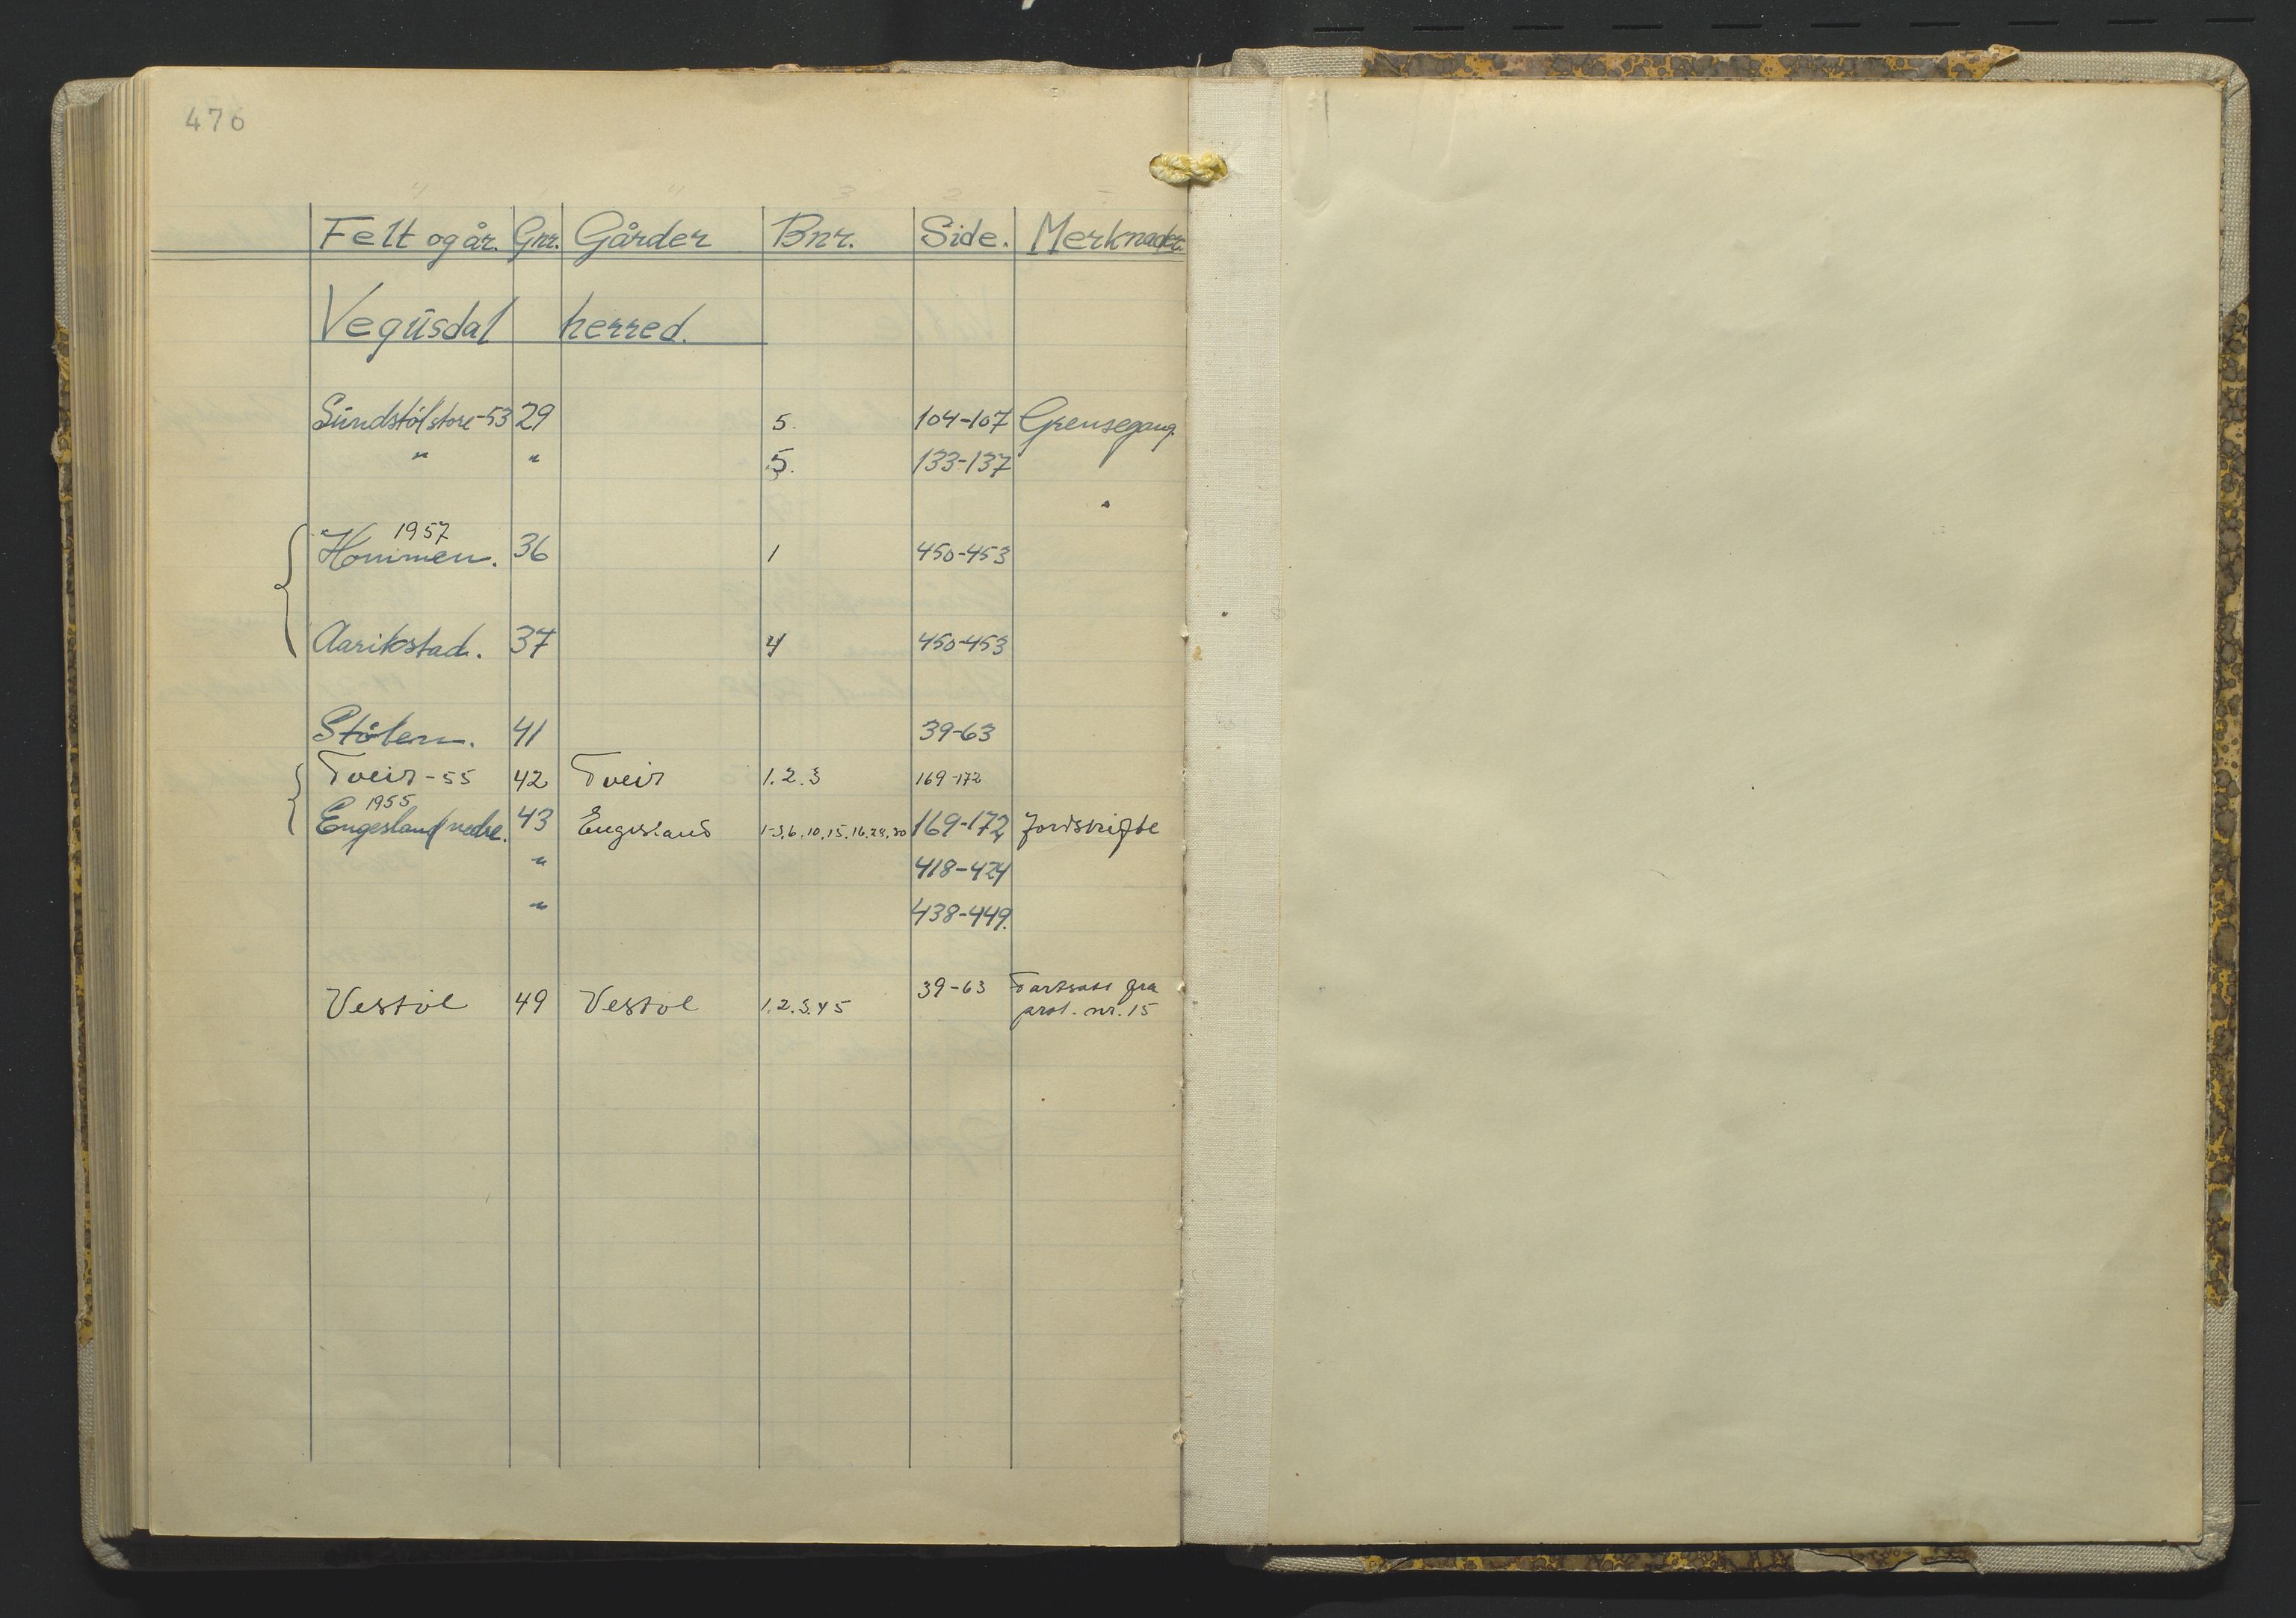 476
Felt og år. Gnr. Gårder Bnr. Side. Merknader.
Vegusdal herred.
Sundstøl store-53 29 5. 104-107 Grensegang.
" " 5. 133-137 "
1957
Hommen. 36 1 450-453
Aarikstad. 37 4 450-453
Stølen. 41 39-63
Tveit-55 42 Tveit 1.2.3 169-172
1955
Engesland nedre. 43 Engesland 1-3,6,10,15,16,28,30 169-172 Jordskifte
" 418-424
" 438-449.
Vestøl 49 Vestøl 1.2.3.4 5 39-63 Fortsatt fra
prot. nr. 15